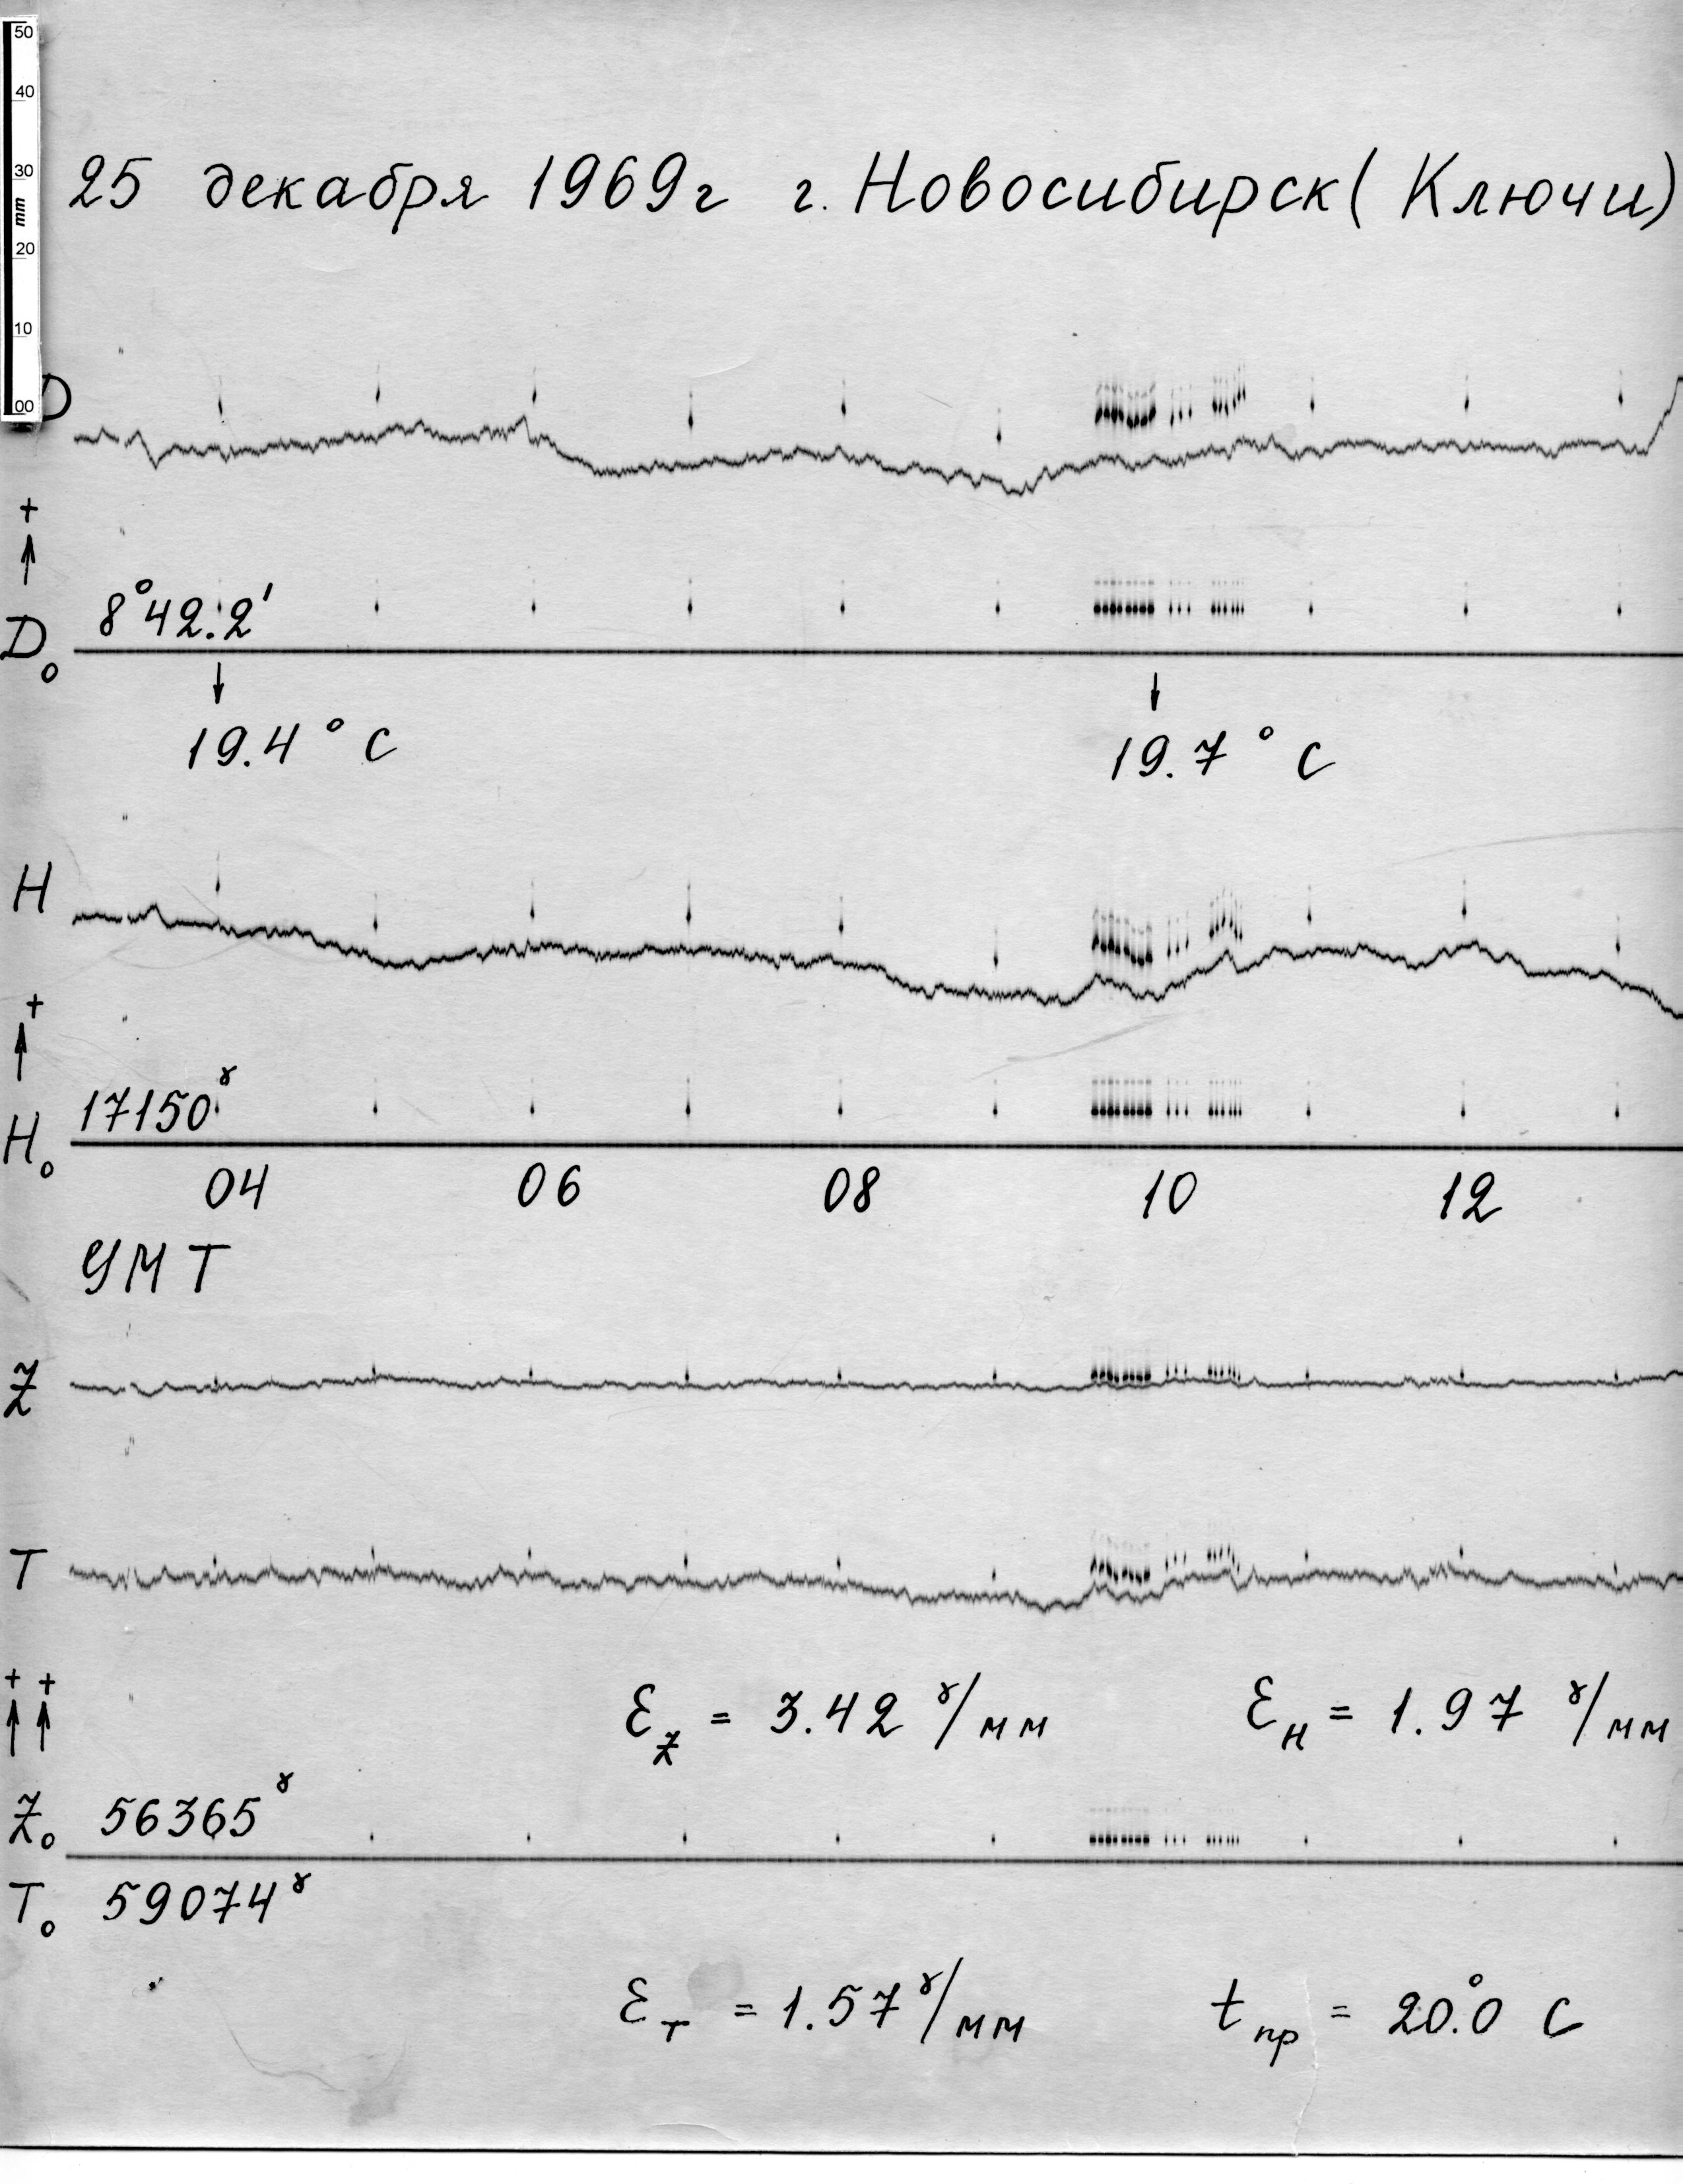 50
40
30
mm
20
10
00
25 декабря 1969г г. Новосибирск (Ключи)
D
+
8°42.2'
D₀
19.4° C
19.7° C
H
+
17150ᵞ
H₀
04 06 08 10 12
УМТ
Z
T
+ +
Ɛ_Z = 3.42 ᵞ/мм Ɛ_H = 1.97 ᵞ/мм
Z₀ 56365ᵞ
T₀ 59074ᵞ
Ɛ_T = 1.57 ᵞ/мм t_пр = 20.°0 C